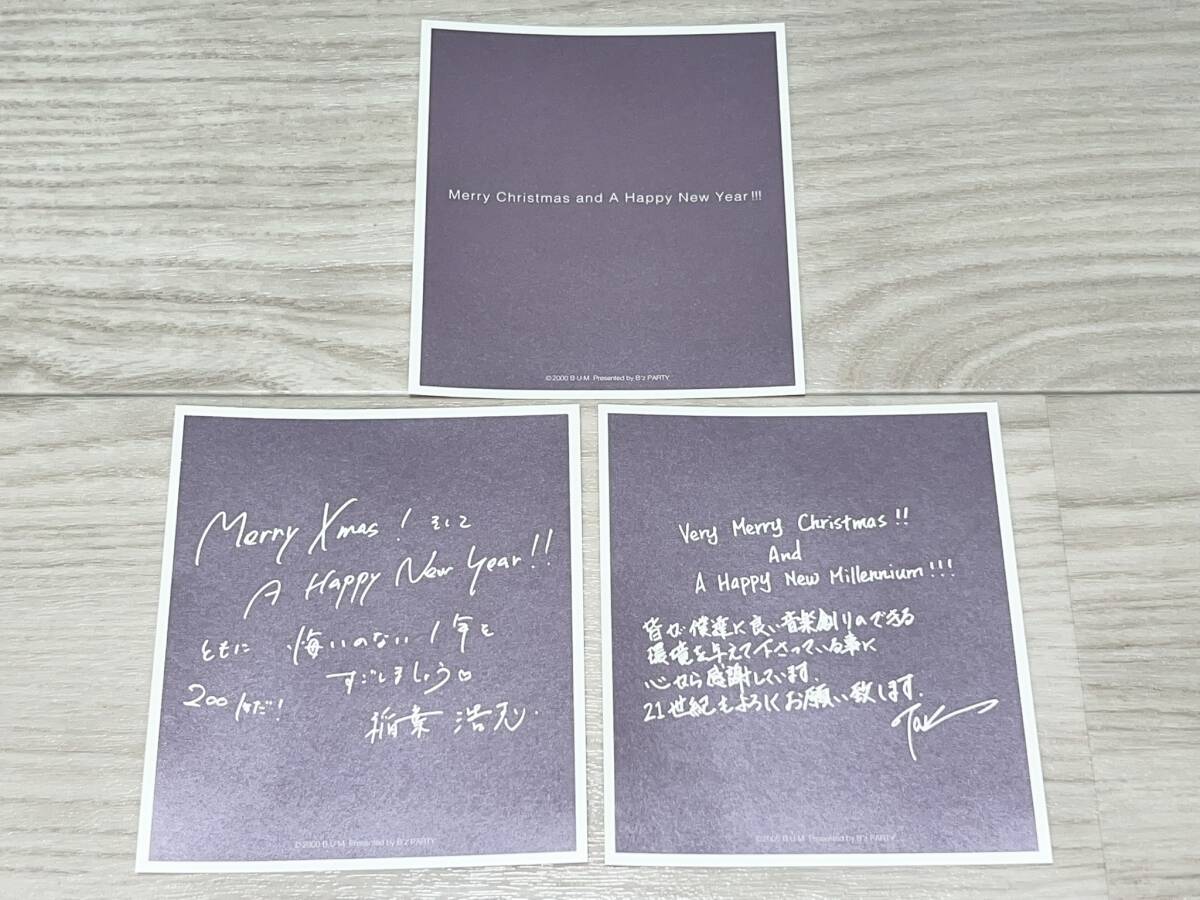 Merry Christmas and A Happy New Year!!!
©2000 B U M Presented by B'z PARTY
Merry Xmas! そして
A Happy New Year!!
ともに 悔いのない1年を
すごしましょう♡
2001年だ!
稲葉浩志.
©2000 B U M Presented by B'z PARTY
Very Merry Christmas!!
And
A Happy New Millennium!!!
皆が僕達に良い音楽創りのできる
環境を与えて下さっている事に
心から感謝しています.
21世紀もよろしくお願い致します.
Tak
©2000 B U M Presented by B'z PARTY